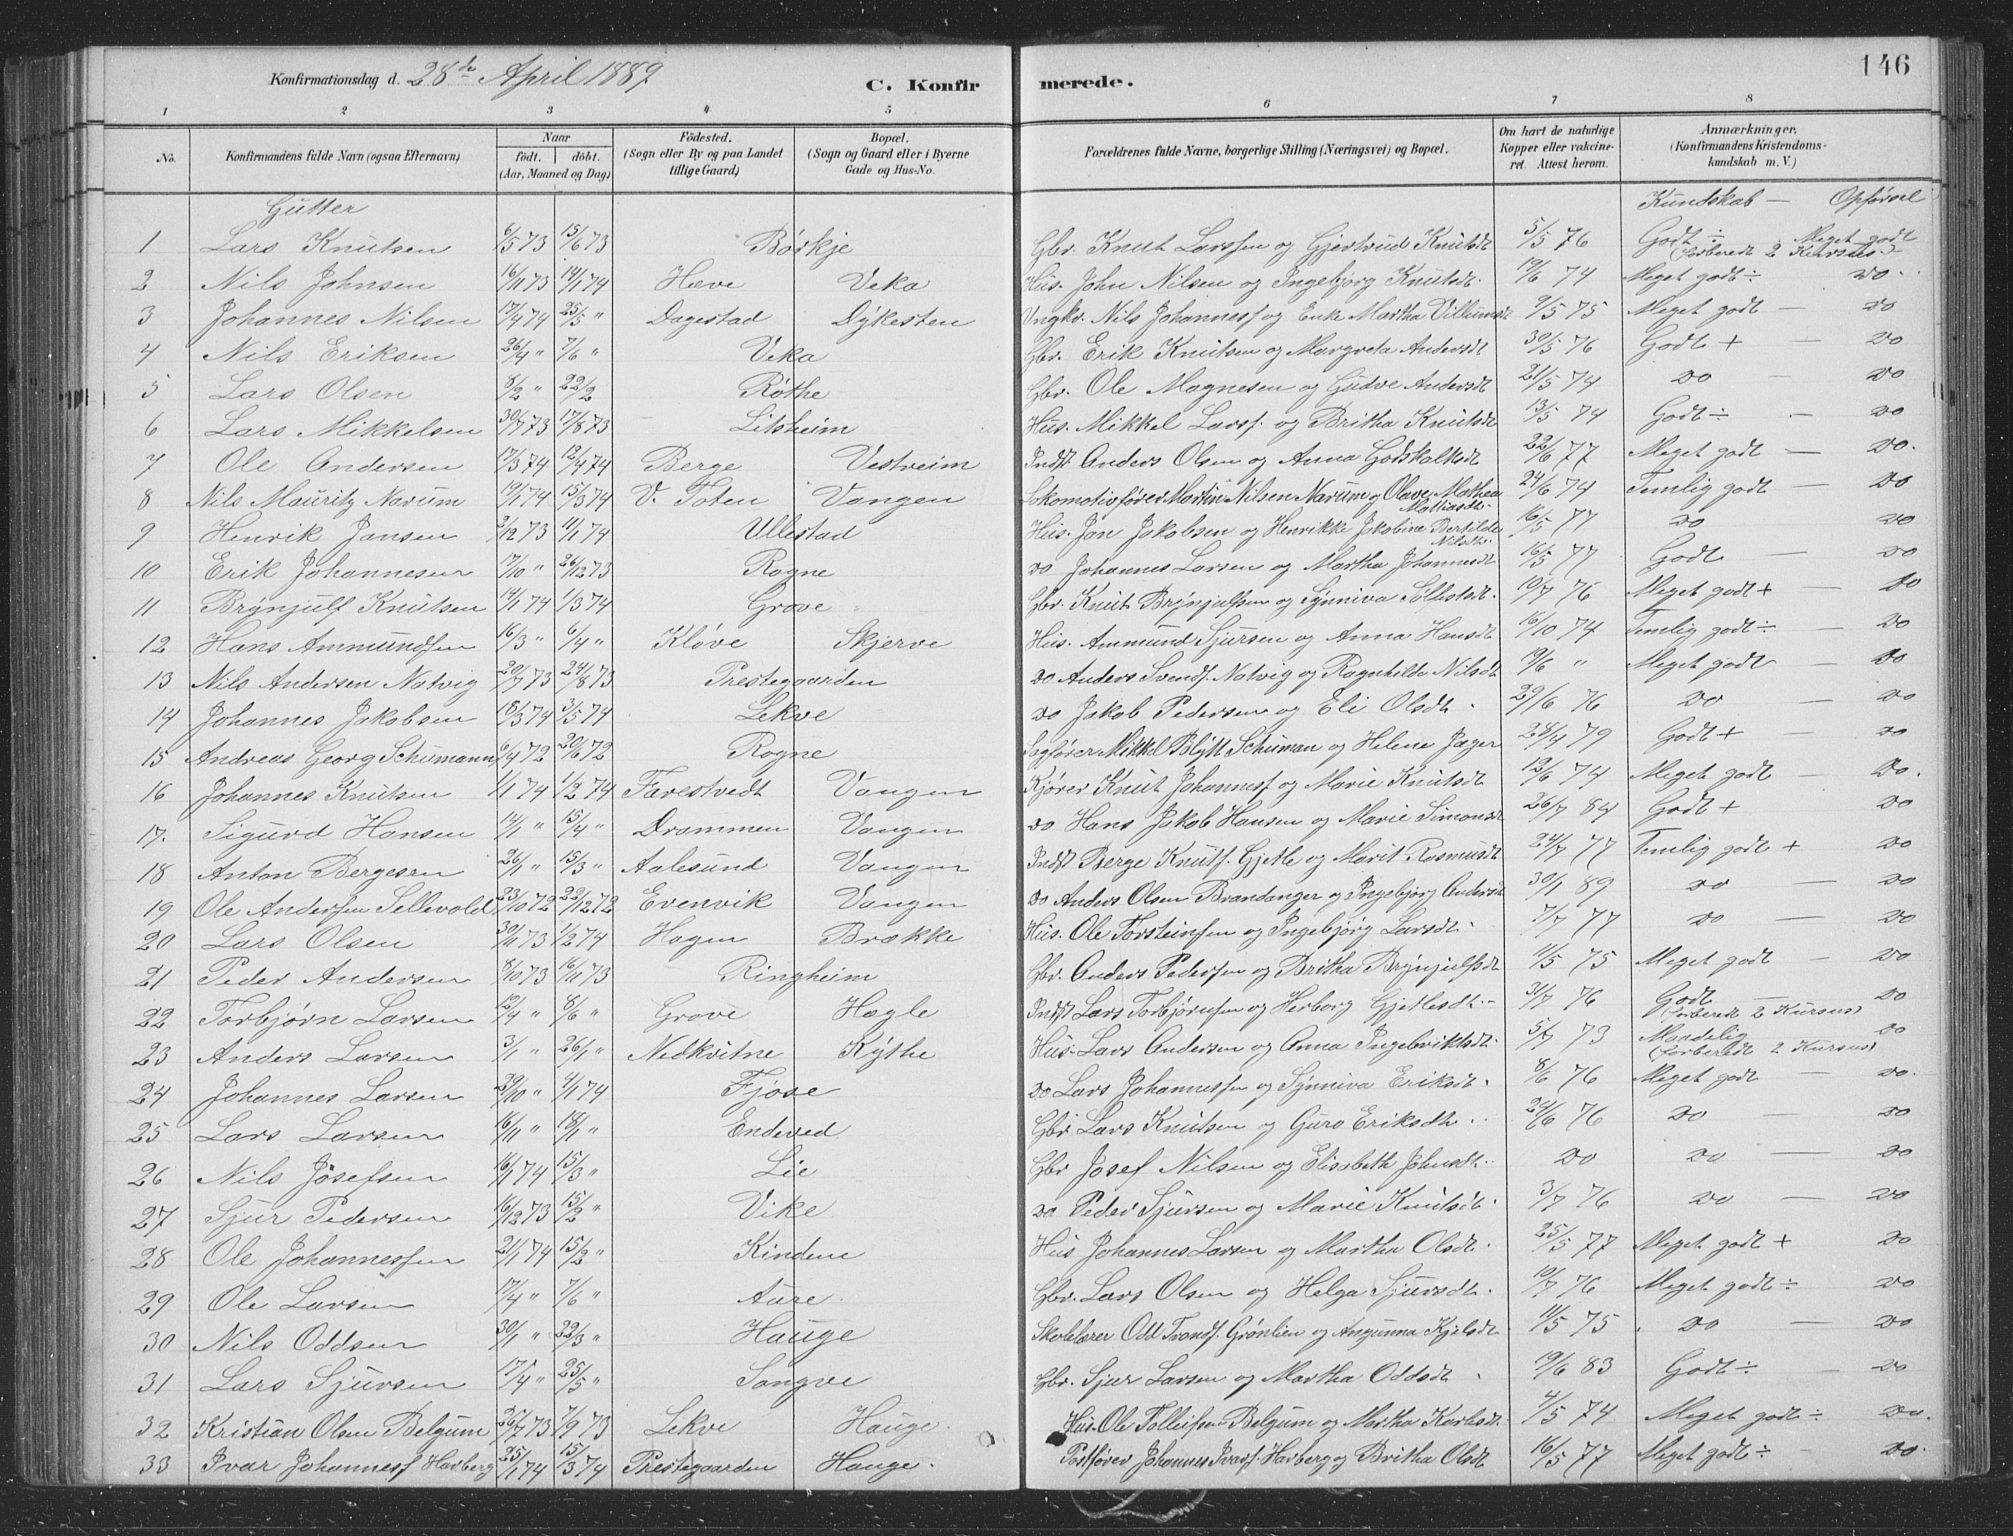 146
Konfirmationsdag d. 28de April 1889
C. Konfirmerede.
1 2 3 4 5 6 7 8
No. Konfirmandens fulde Navn (ogsaa Efternavn) Naar födt. döbt. (Aar, Maaned og Dag) Födested. (Sogn eller By og paa Landet tillige Gaard) Bopæl. (Sogn og Gaard eller i Byerne Gade og Hus-No. Forældrenes fulde Navne, borgerlige Stilling (Næringsvei) og Bopæl. Om havt de naturlige Kopper eller vakcineret. Attest herom. Anmærkninger. (Konfirmandens Kristendomskundskab m. V.)
Gutter Kundskab — Opførsel
1 Lars Knutsen 6/5 73 15/6 73 Børkje Gbr. Knut Larssen og Gjertrud Knutsdt 5/5 76 Godt ÷ Meget godt (forberedt 2 Kursus)
2 Nils Johnsen 16/11 73 19/1 74 Hæve Veka Hus. John Nilsen og Ingebjørg Knutsdt. 19/6 74 Meget godt ÷ do.
3 Johannes Nilsen 17/4 74 25/5 " Dagestad Dykesten Ungkr. Nils Johannesf og Enk Martha Villumsdt 9/5 75 Meget godt — do
4 Nils Eriksen 26/4 " 7/6 " Veka Gbr. Erik Knutsen og Margreta Andersdt 30/5 76 Godt + — do
5 Lars Olsen 8/2 " 22/2 Røthe Gbr. Ole Magnesen og Gudve Andersdt 21/5 74 do — do
6 Lars Mikkelsen 30/7 73 17/8 73 Litsheim Hus. Mikkel Larsf. og Britha Knutsdt 13/5 74 Godt ÷ — do
7 Ole Andersen 17/3 74 12/4 74 Berge Vestreim Indst Anders Olsen og Anna Godskalksdt 22/6 77 Meget godt — do.
8 Nils Mauritz Narum 19/1 74 15/3 74 V. Toten Vangen Lokomotivfører Martin Nilsen Narum og Olave Mathea Mathiasdt. 24/6 74 Temlig godt — do
9 Henrik Jansen 2/12 73 11/1 74 Ullestad Hus. Jan Jakobsen og Henrikke Jakobine Bertilde Nilsdt. 16/5 77 do do
10 Erik Johannesen 7/10 " 26/12 73 Rogne do Johannes Larsen og Martha Johannesdt 16/5 77 Godt — do
11 Brynjulf Knutsen 14/1 74 1/3 74 Grove Gbr. Knut Brynjulfsen og Synniva Sjøllestdt. 10/7 76 Meget godt + do
12 Hans Ammundsen 16/3 " 6/4 " Kløve Skjerve Hus. Ammund Sjursen og Anna Hansdt 16/10 74 Temlig godt ÷ — do
13 Nils Andersen Natvig 20/7 73 24/8 73 Prestegaarden do Anders Svendf. Natvig og Ragnhilda Nilsdt 19/6 " Meget godt — do
14 Johannes Jakobsen 18/3 74 3/5 74 Lekve do Jakob Pedersen og Eli Olsdt. 29/6 76 do — do
15 Andreas Georg Schumann 6/4 72 20/6 72 Rogne Sagfører Mikkel Blytt Schuman og Helene Jæger 28/4 79 Godt + — do
16 Johannes Knutsen 1/1 74 1/2 74 Færestvedt Vangen Kjører Knut Johannesf og Marie Knutsdt 12/6 74 Meget godt — do.
17. Sigurd Hansen 14/1 " 15/4 " Drammen Vangen do Hans Jakob Hansen og Marie Simonsdt 26/7 84 Godt + do
18 Anton Bergesen 26/1 " 15/3 " Aalesund Vangen Indst Berge Knutf. Gjetle og Marit Rasmusdt 24/7 77 Temlig godt + do
19 Ole Andersen Sellevold 23/10 72 22/12 72 Evenvik Vangen do Anders Olsen Brandanger og Ingebjørg Andersdt 30/1 89 do — do
20 Lars Olsen 30/11 73 1/2 74 Hagen Brække Hus. Ole Torsteinsen og Ingebjørg Larsdt. 7/7 77 do — do
21 Peder Andersen 8/10 73 16/11 73 Ringheim Gbr. Anders Pedersen og Britha Brynjulfsdt 11/5 75 Meget godt — do
22 Torbjørn Larsen 12/4 " 8/6 " Grove Hægle Indst Lars Torbjørnsen og Herborg Gjetlesdt. 31/7 76 Godt — do (forberedt 2 Kursus)
23 Anders Larsen 3/1 " 26/1 " Nedkvitne Kythe Hus. Lars Andersen og Anna Ingebriktsdt. 5/7 73 Maadelig do (forberedt 2 Kursus)
24 Johannes Larsen 29/10 " 4/1 74 Fjose do Lars Johannessen og Synniva Eriksdt. 8/6 76 Meget godt — do.
25 Lars Larsen 16/11 " 18/1 " Endeved Gbr Lars Knutsen og Guro Eriksdt. 24/6 76 do — do
26 Nils Josefsen 16/1 74 15/3 " Lie Gbr Josef Nilsen og Elisabeth Johnsdt. do do — do
27 Sjur Pedersen 16/12 73 15/2 " Vike do Peder Sjursen og Marie Knutsdt. 3/7 76 do — do
28 Ole Johannessen 21/1 74 15/2 " Kindem Hus Johannes Larsen og Martha Olsdt. 25/5 77 Meget godt + do
29 Ole Larsen 17/4 " 7/6 " Aure Gbr. Lars Olsen og Helga Sjursdt. 10/7 76 Meget godt ÷ do
30 Nils Oddsen 30/1 " 22/3 " Hauge Skolelærer Odd Trondf. Grønlien og Angunna Kjelsdt 11/5 75 do — do
31 Lars Sjursen 17/4 " 25/5 " Sangve Gbr. Sjur Larsen og Martha Oddsdt 19/6 83 Godt ÷ — do
32 Kristian Olsen Belgum 26/7 73 7/9 73 Lekve Hauge Hus. Ole Tolleifsen Belgum og Martha Karlsdt 4/5 74 Meget godt ÷ do.
33 Ivar Johannesf Havberg 25/1 74 15/3 74 Prestegaarden Hauge. Postfører Johannes Ivarsf. Havberg og Britha Olsdt 16/5 77 Meget godt ÷ do.